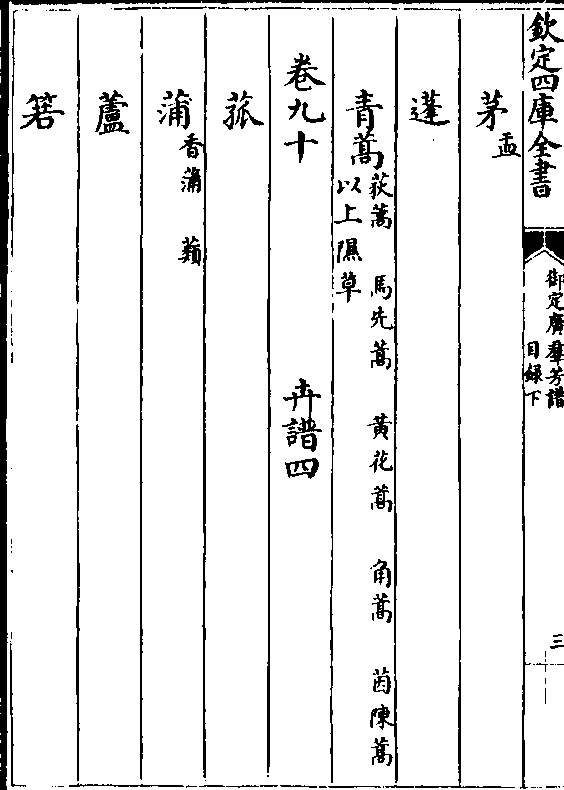 欽定四庫全書
御定廣羣芳譜
目録下
三
茅
䓝
蓬
青蒿
荻蒿　馬先蒿　黃花蒿　角蒿　茵陳蒿
以上隰草
卷九十　卉譜四
菰
蒲
香蒲　蘋
蘆
箬